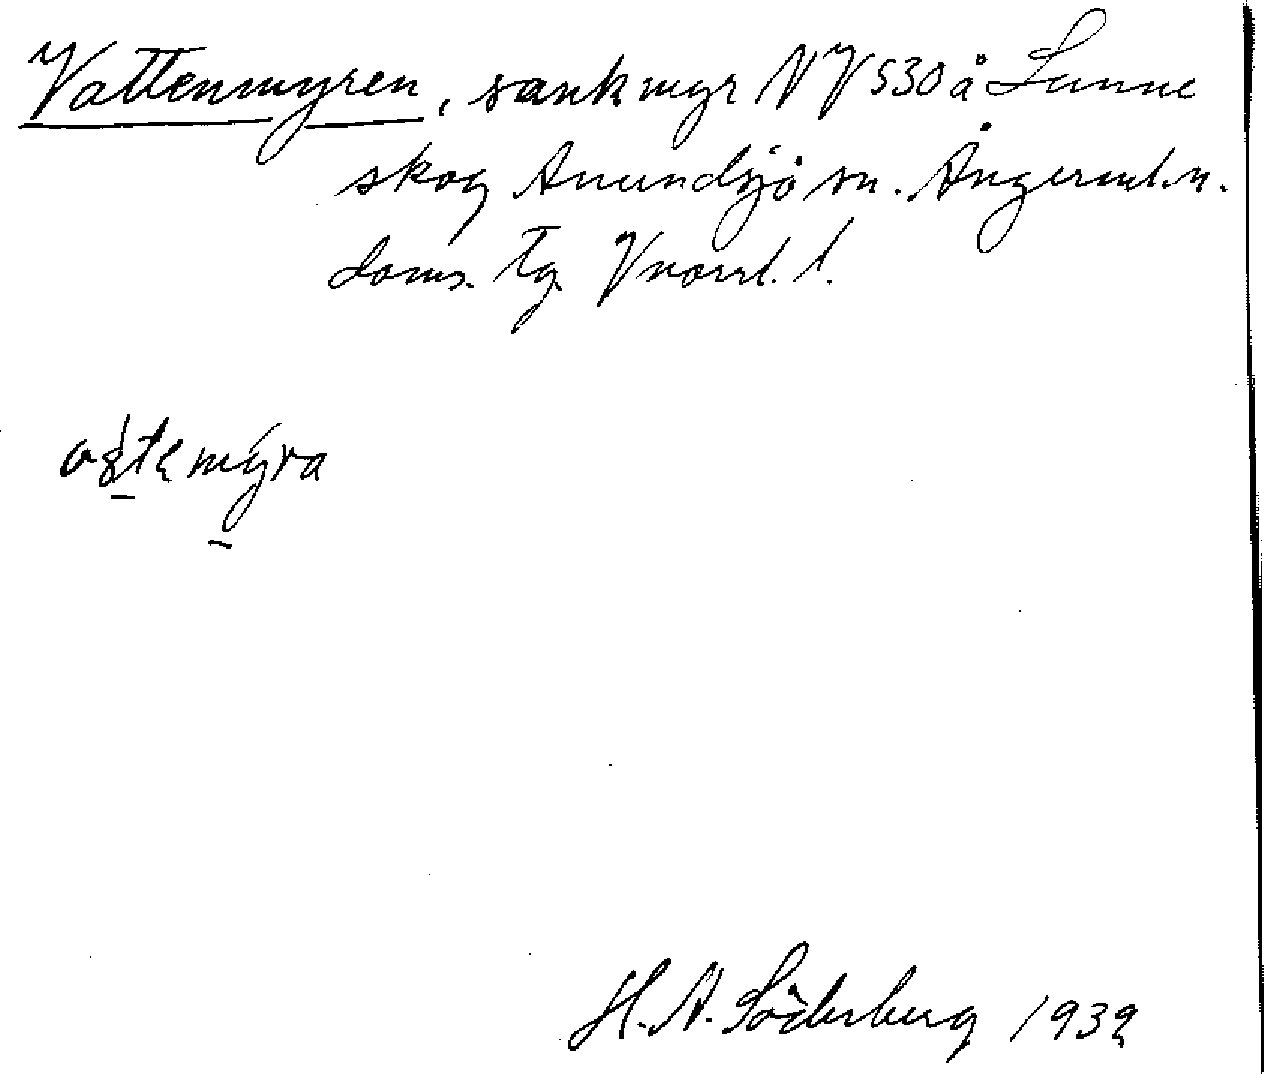 Vattenmyren, sank myr NV 530 å Lunne
skog Anundsjö sn. Ångerml. n.
doms. tg. Vnorrl. l.
H. A. Söderberg 1932